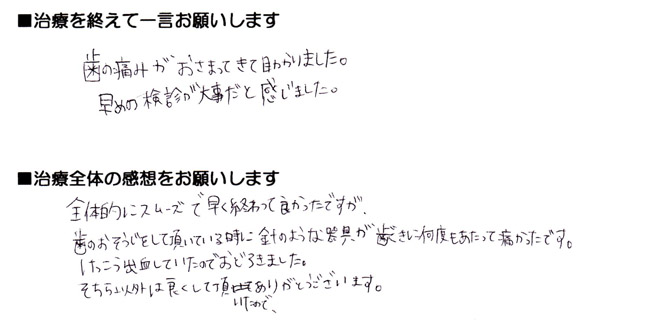 ■治療を終えて一言お願いします
歯の痛みがおさまってきて助かりました。
早めの検診が大事だと感じました。
■治療全体の感想をお願いします
全体的にスムーズで早く終わって良かったですが、
歯のおそうじをして頂いている時に針のような器具が歯ぐきに何度もあたって痛かったです。
けっこう出血していたのでおどろきました。
そちら以外は良くして頂ありがとうございます。
いたので、